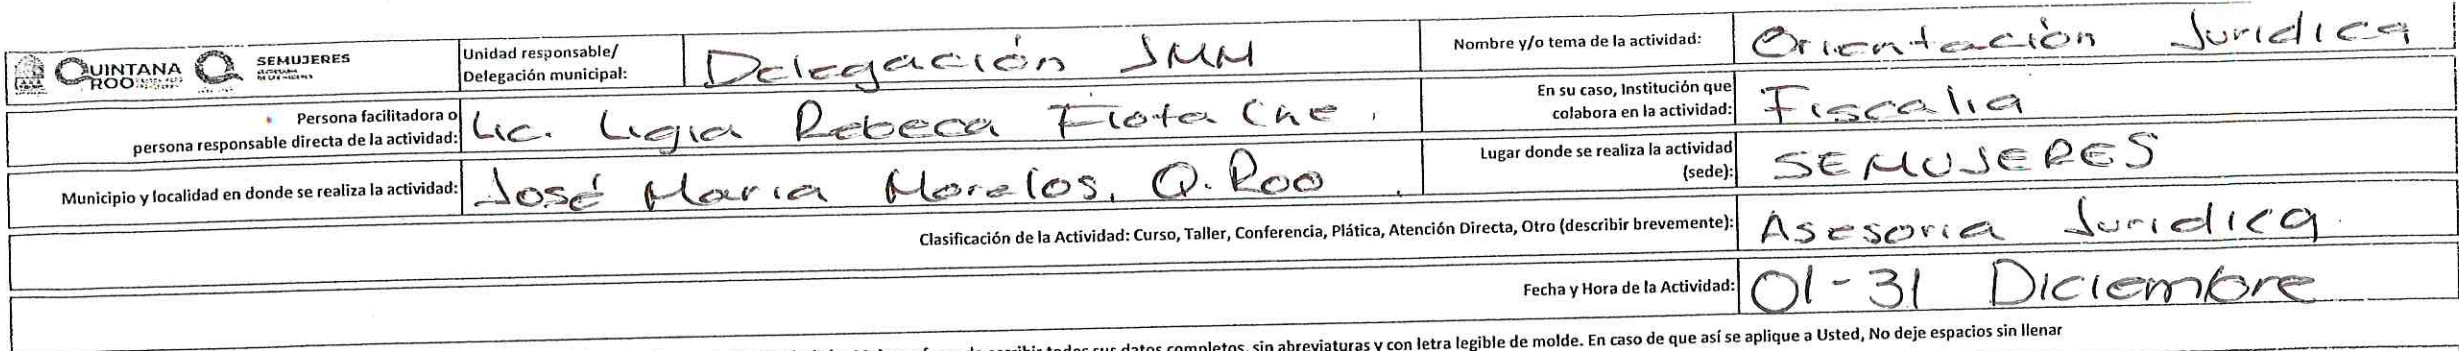 QUINTANA ROO SEMUJERES
Unidad responsable/ Delegación municipal: Delegación JMM
Nombre y/o tema de la actividad: Orientación Juridica
Persona facilitadora o persona responsable directa de la actividad: Lic. Ligia Rebeca Flota Che.
En su caso, Institución que colabora en la actividad: Fiscalia
Municipio y localidad en donde se realiza la actividad: José Maria Morelos, Q. Roo
Lugar donde se realiza la actividad (sede): SEMUJERES
Clasificación de la Actividad: Curso, Taller, Conferencia, Plática, Atención Directa, Otro (describir brevemente): Asesoria Juridica
Fecha y Hora de la Actividad: 01-31 Diciembre
todos sus datos completos, sin abreviaturas y con letra legible de molde. En caso de que así se aplique a Usted, No deje espacios sin llenar